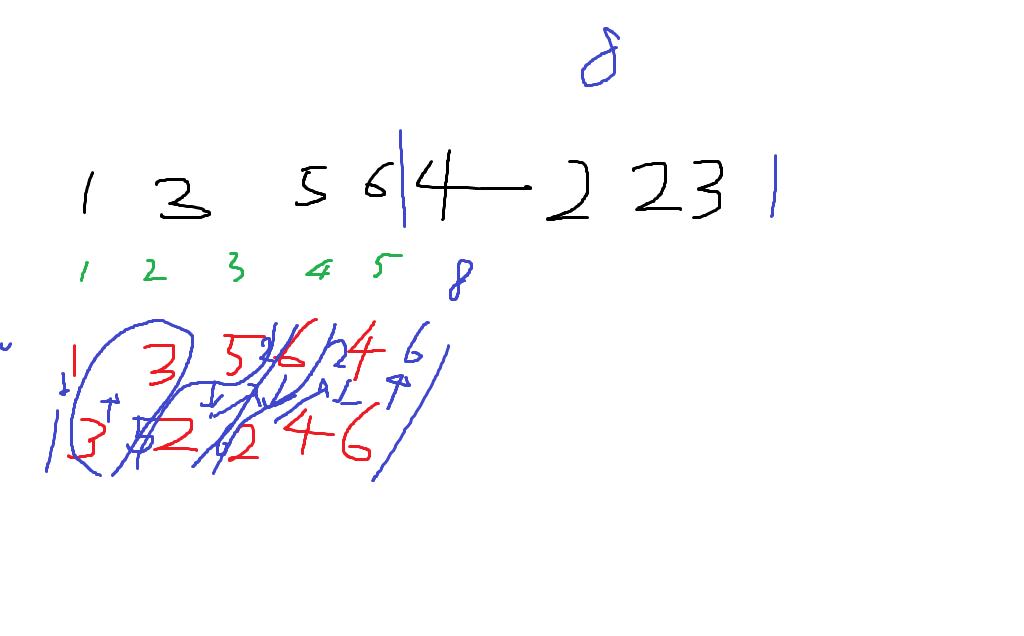 8
1 3 5 6 | 4 2 2 3 |
1 2 3 4 5 8
1 3 5 2 6 2 4 6
3 5 2 6 2 4 6